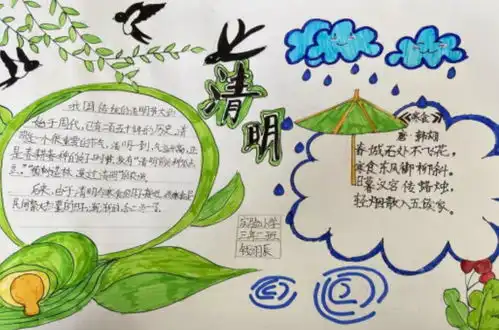 我国传统的清明节大约
始于周代,已有二千五百多年的历史,清
明是一个很重要的节气,清明一到,气温升高,正
是春耕春种的大好时节,故有"清明前后,种瓜点
豆。""植树造林,莫过清明"的农谚。
后来,由于清明与寒食的日子接近,
民间禁火扫墓的日子,
清
明
实验小学
三年二班
《寒食》
唐·韩翃
春城无处不飞花,
寒食东风御柳斜。
日暮汉宫传蜡烛,
轻烟散入五侯家。